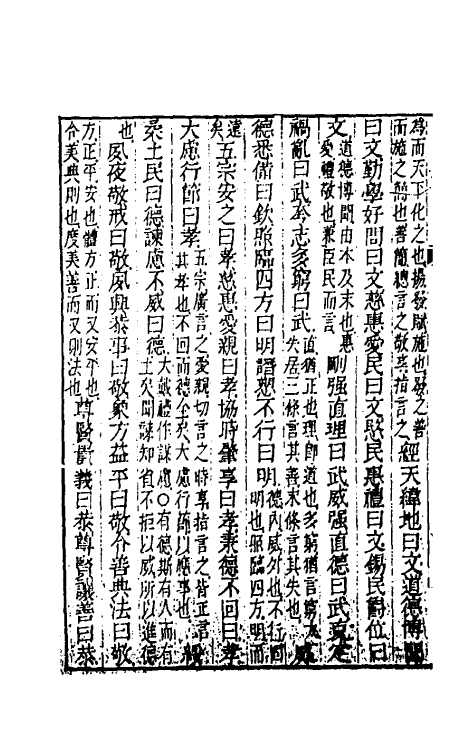 為而天下化之也揚發賦施也發之善
而施之簡也善簡總言之敬恭指言之經天緯地曰文道德博聞
曰文勤學好問曰文慈惠愛民曰文愍民惠禮曰文錫民爵位曰
文道德博聞由本及末也惠
愛禮敬也兼臣民而言剛强直理曰武威强直德曰武克定
禍亂曰武夸志多窮曰武直猶正也理即道也多窮猶言
失居三條言其善末條言其失也
德悉備曰欽照臨四方曰明譖愬不行曰明德內威外也不行
明也照臨四方明而
遠
矣五宗安之曰孝慈惠愛親曰孝協時肇享曰孝秉德不回曰孝
大慮行節曰孝五宗廣言之愛親切言之時享指言之皆正言
其孝也不回而德全矣大慮行節以應事也
柔土民曰德諫慮不威曰德大鼓禮作謀慮○有德斯有人而有
土矣聞諫知省不拒以威所以進德
也夙夜敬戒曰敬夙興恭事曰敬象方益平曰敬合善典法曰敬
方正平安也體方正而又安平也
合美典則也度美善而又則法也尊賢貴義曰恭尊賢讓善曰恭